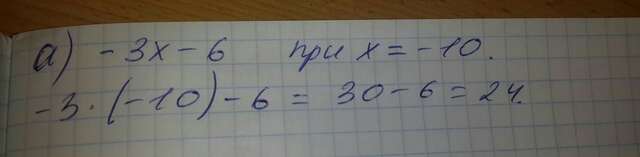 а) -3x - 6 при x = -10.
-3 · (-10) - 6 = 30 - 6 = 24.